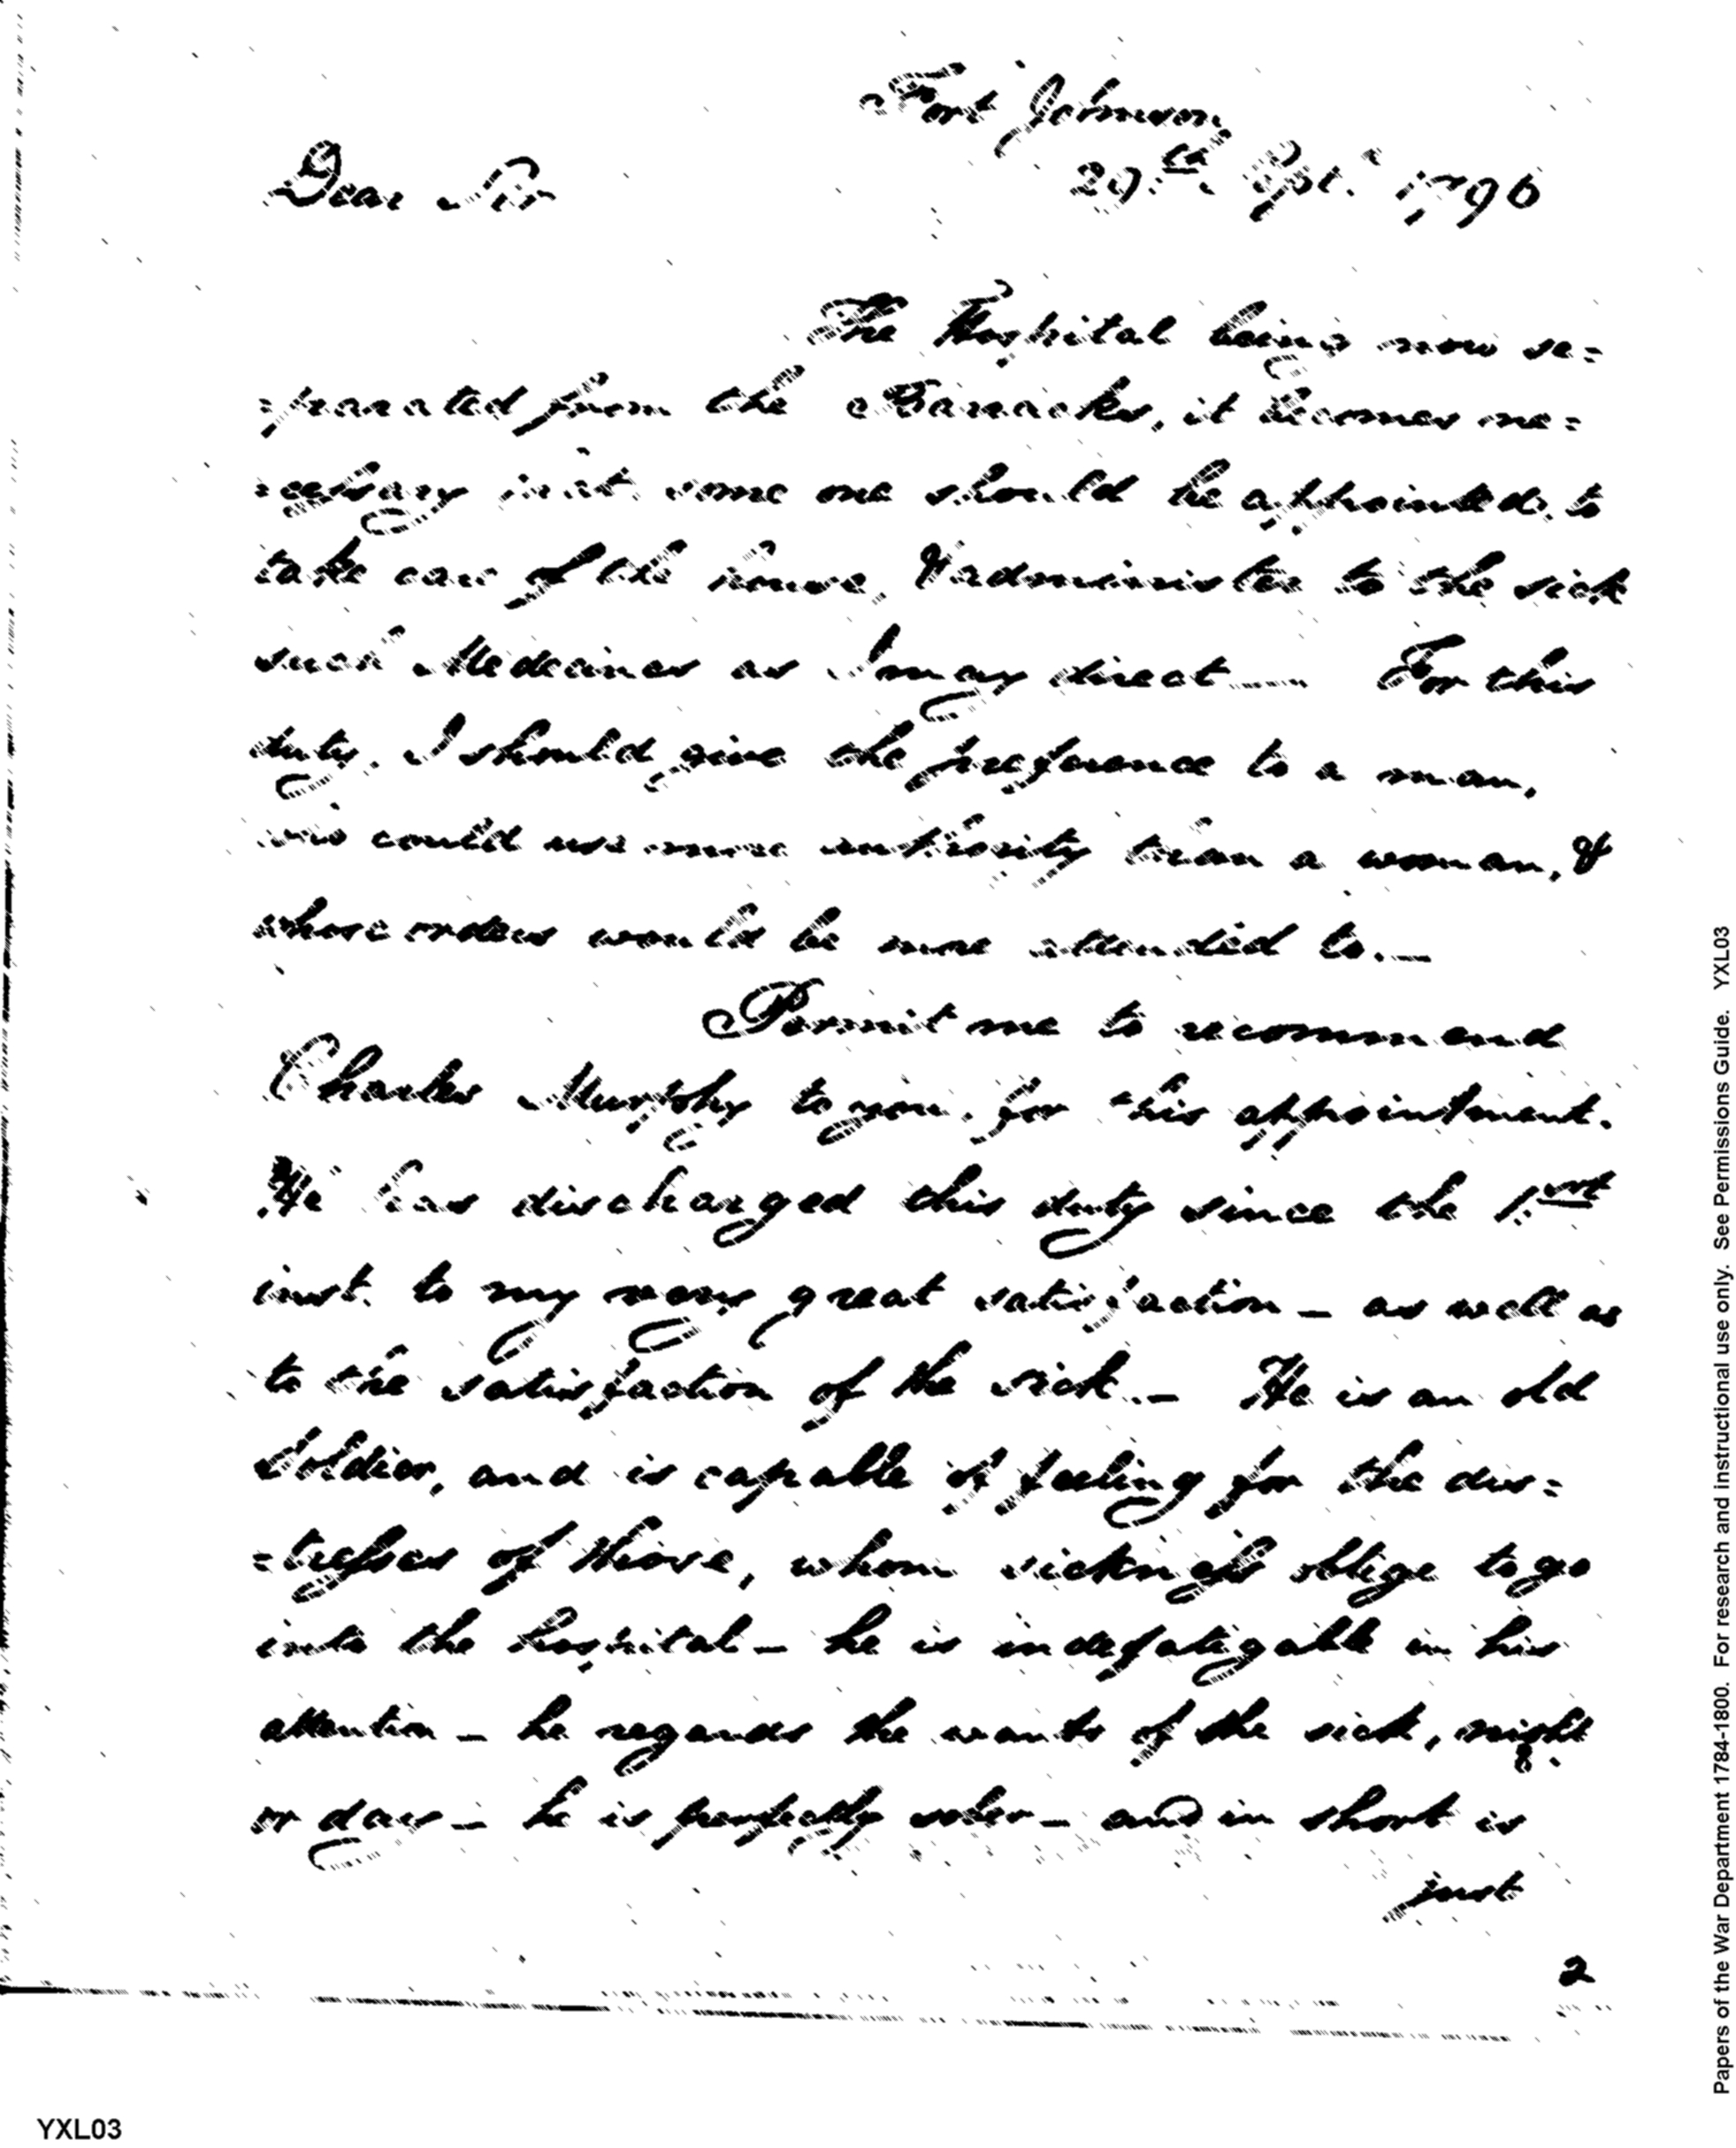 Fort Johnson,
Dear Sir
29th. Sept. 1796
The Hospital being now se=
=parated from the Barracks, it becomes ne=
=cessary that some one should be appointed, to
take care of the house, & administer to the sick
such Medecines as I may direct ___ For this
duty, I should give the preference to a man,
who could use more authority than a woman, &
whose orders would be more attended to._
Permit me to recommend
Charles Murphy to you, for this appointment.
He has discharged this duty since the 1.rst
inst. to my very great satisfaction _ as well as
to the satisfaction of the sick._ He is an old
Soldier, and is capable of feeling for the dis=
=tresses of those, whom sickness oblige to go
into the hospital _ he is indefatigable in his
attention _ he regards the wants of the sick, night
or day _ he is perfectly sober _ and in short is
just
2
YXL03
Papers of the War Department 1784-1800. For research and instructional use only. See Permissions Guide. YXL03